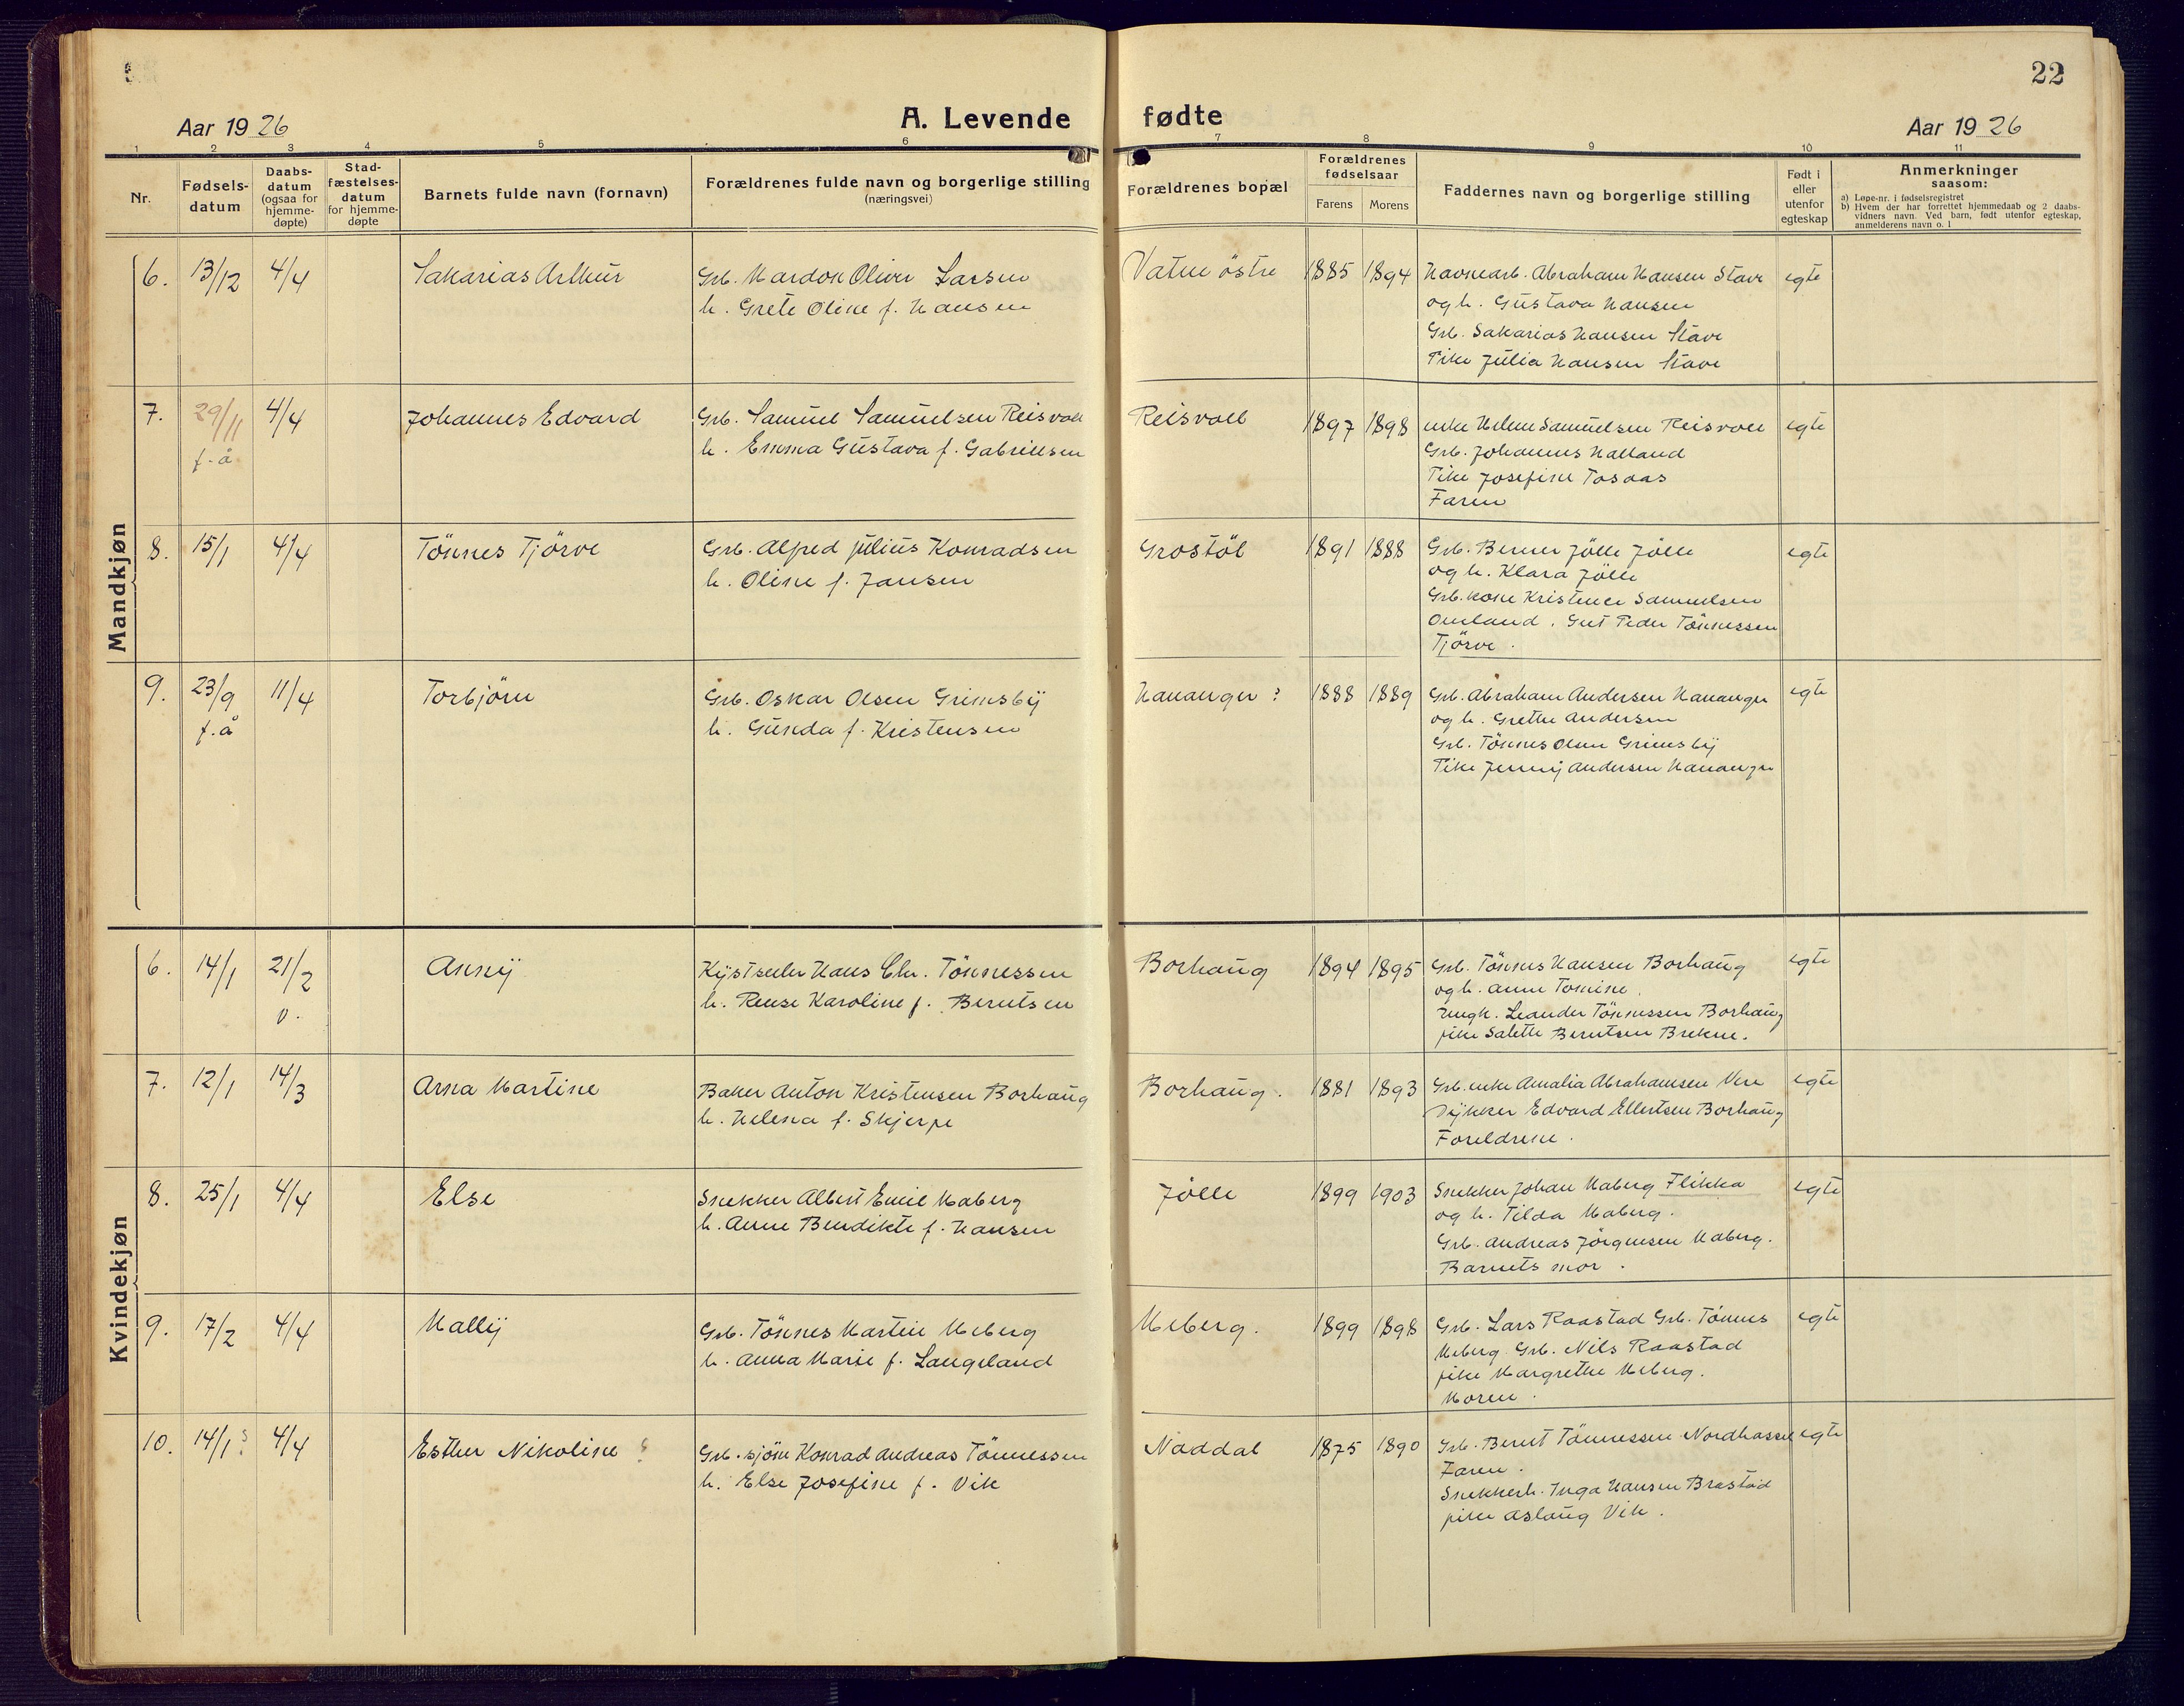 22
Aar 1926
A. Levende fødte
Aar 1926
1 2 3 4 5 6 7 8 9 10 11
Nr.
Fødsels-
datum
Daabs-
datum
(ogsaa for
hjemme-
døpte)
Stad-
fæstelses-
datum
for hjemme-
døpte
Barnets fulde navn (fornavn)
Forældrenes fulde navn og borgerlige stilling
(næringsvei)
Forældrenes bopæl
Forældrenes
fødselsaar
Farens Morens
Faddernes navn og borgerlige stilling
Født i
eller
utenfor
egteskap
Anmerkninger
saasom:
a) Løpe-nr. i fødselsregistret
b) Hvem der har forrettet hjemmedaab og 2 daabs-
vidners navn. Ved barn, født utenfor egteskap,
anmelderens navn o. l
Mandkjøn
6. 13/12 4/4 Sakarias Arthur
Grb. Mardon Oliver Larsen
h. Grete Oline f. Hansen
Vatne östre 1885 1894
Havnearb. Abraham Hansen Stave
og h. Gustava Hansen
Grb. Sakarias Hansen Stave
Pike Julia Hansen Stave
egte
7. 29/11 4/4 Johannes Edvard
f. å
Grb. Samuel Samuelsen Reisvoll
h. Emma Gustava f. Gabrielsen
Reisvoll 1897 1898
enke Helene Samuelsen Reisvoll
Grb. Johannes Halland
Pike Josefine Tosaas
Faren
egte
8. 15/1 4/4 Tönnes Tjörve
Grb. Alfred Julius Konradsen
h. Oline f. Jansen
Grostöl 1891 1888
Grb. Berner Jölle Jölle
og h. Klara Jölle
Grb. kone Kristence Samuelsen
Omland. Gut Peder Tönnessen
Tjörve.
egte
9. 23/9 11/4 Torbjörn
f. å
Grb. Oskar Olsen Grimsby
h. Gunda f. Kristensen
Hananger ? 1888 1889
Grb. Abraham Andersen Hananger
og h. Grethe Andersen
Grb. Tönnes Olsen Grimsby
Pike Jenny Andersen Hananger
egte
Kvindekjøn
6. 14/1 21/2 Anny
v.
Kystseiler Hans Chr. Tönnessen
h. Rense Karoline f. Berntsen
Borhaug 1894 1895
Grb. Tönnes Hansen Borhaug
og h. Anne Tomine.
Ungk. Leander Tönnessen Borhaug
pike Salette Berntsen Brekne.
egte
7. 12/1 14/3 Arna Martine
Baker Anton Kristensen Borhaug
h. Helena f. Skjerpe
Borhaug. 1881 1893
Grb. enke Amalia Abrahamsen Vere
Dykker Edvard Ellertsen Borhaug
Foreldrene.
egte
8. 25/1 4/4 Else
Snekker Albert Emil Maberg
h. Anne Bendikte f. Hansen
Jölle 1899 1903
Snekker Johan Maberg Flikka
og h. Tilda Maberg.
Grb. Andreas Jörgensen Maberg.
Barnets mor.
egte
9. 17/2 4/4 Mally
Grb. Tönnes Martin Meberg
h. Anna Marie f. Langeland
Meberg. 1899 1898
Grb. Lars Raastad Grb. Tönnes
Meberg. Grb. Nils Raastad
pike Margrethe Meberg.
Moren.
egte
10. 14/1 ? 4/4 Esther Nikoline ?
Grb. sjöm Konrad Andreas Tönnessen
h. Else Josefine f. Vik
Naddal 1875 1890
Grb. Bernt Tönnessen Nordhassel
Faren.
Snekkerh. Inga Hansen Brastad
pike Aslaug Vik.
egte